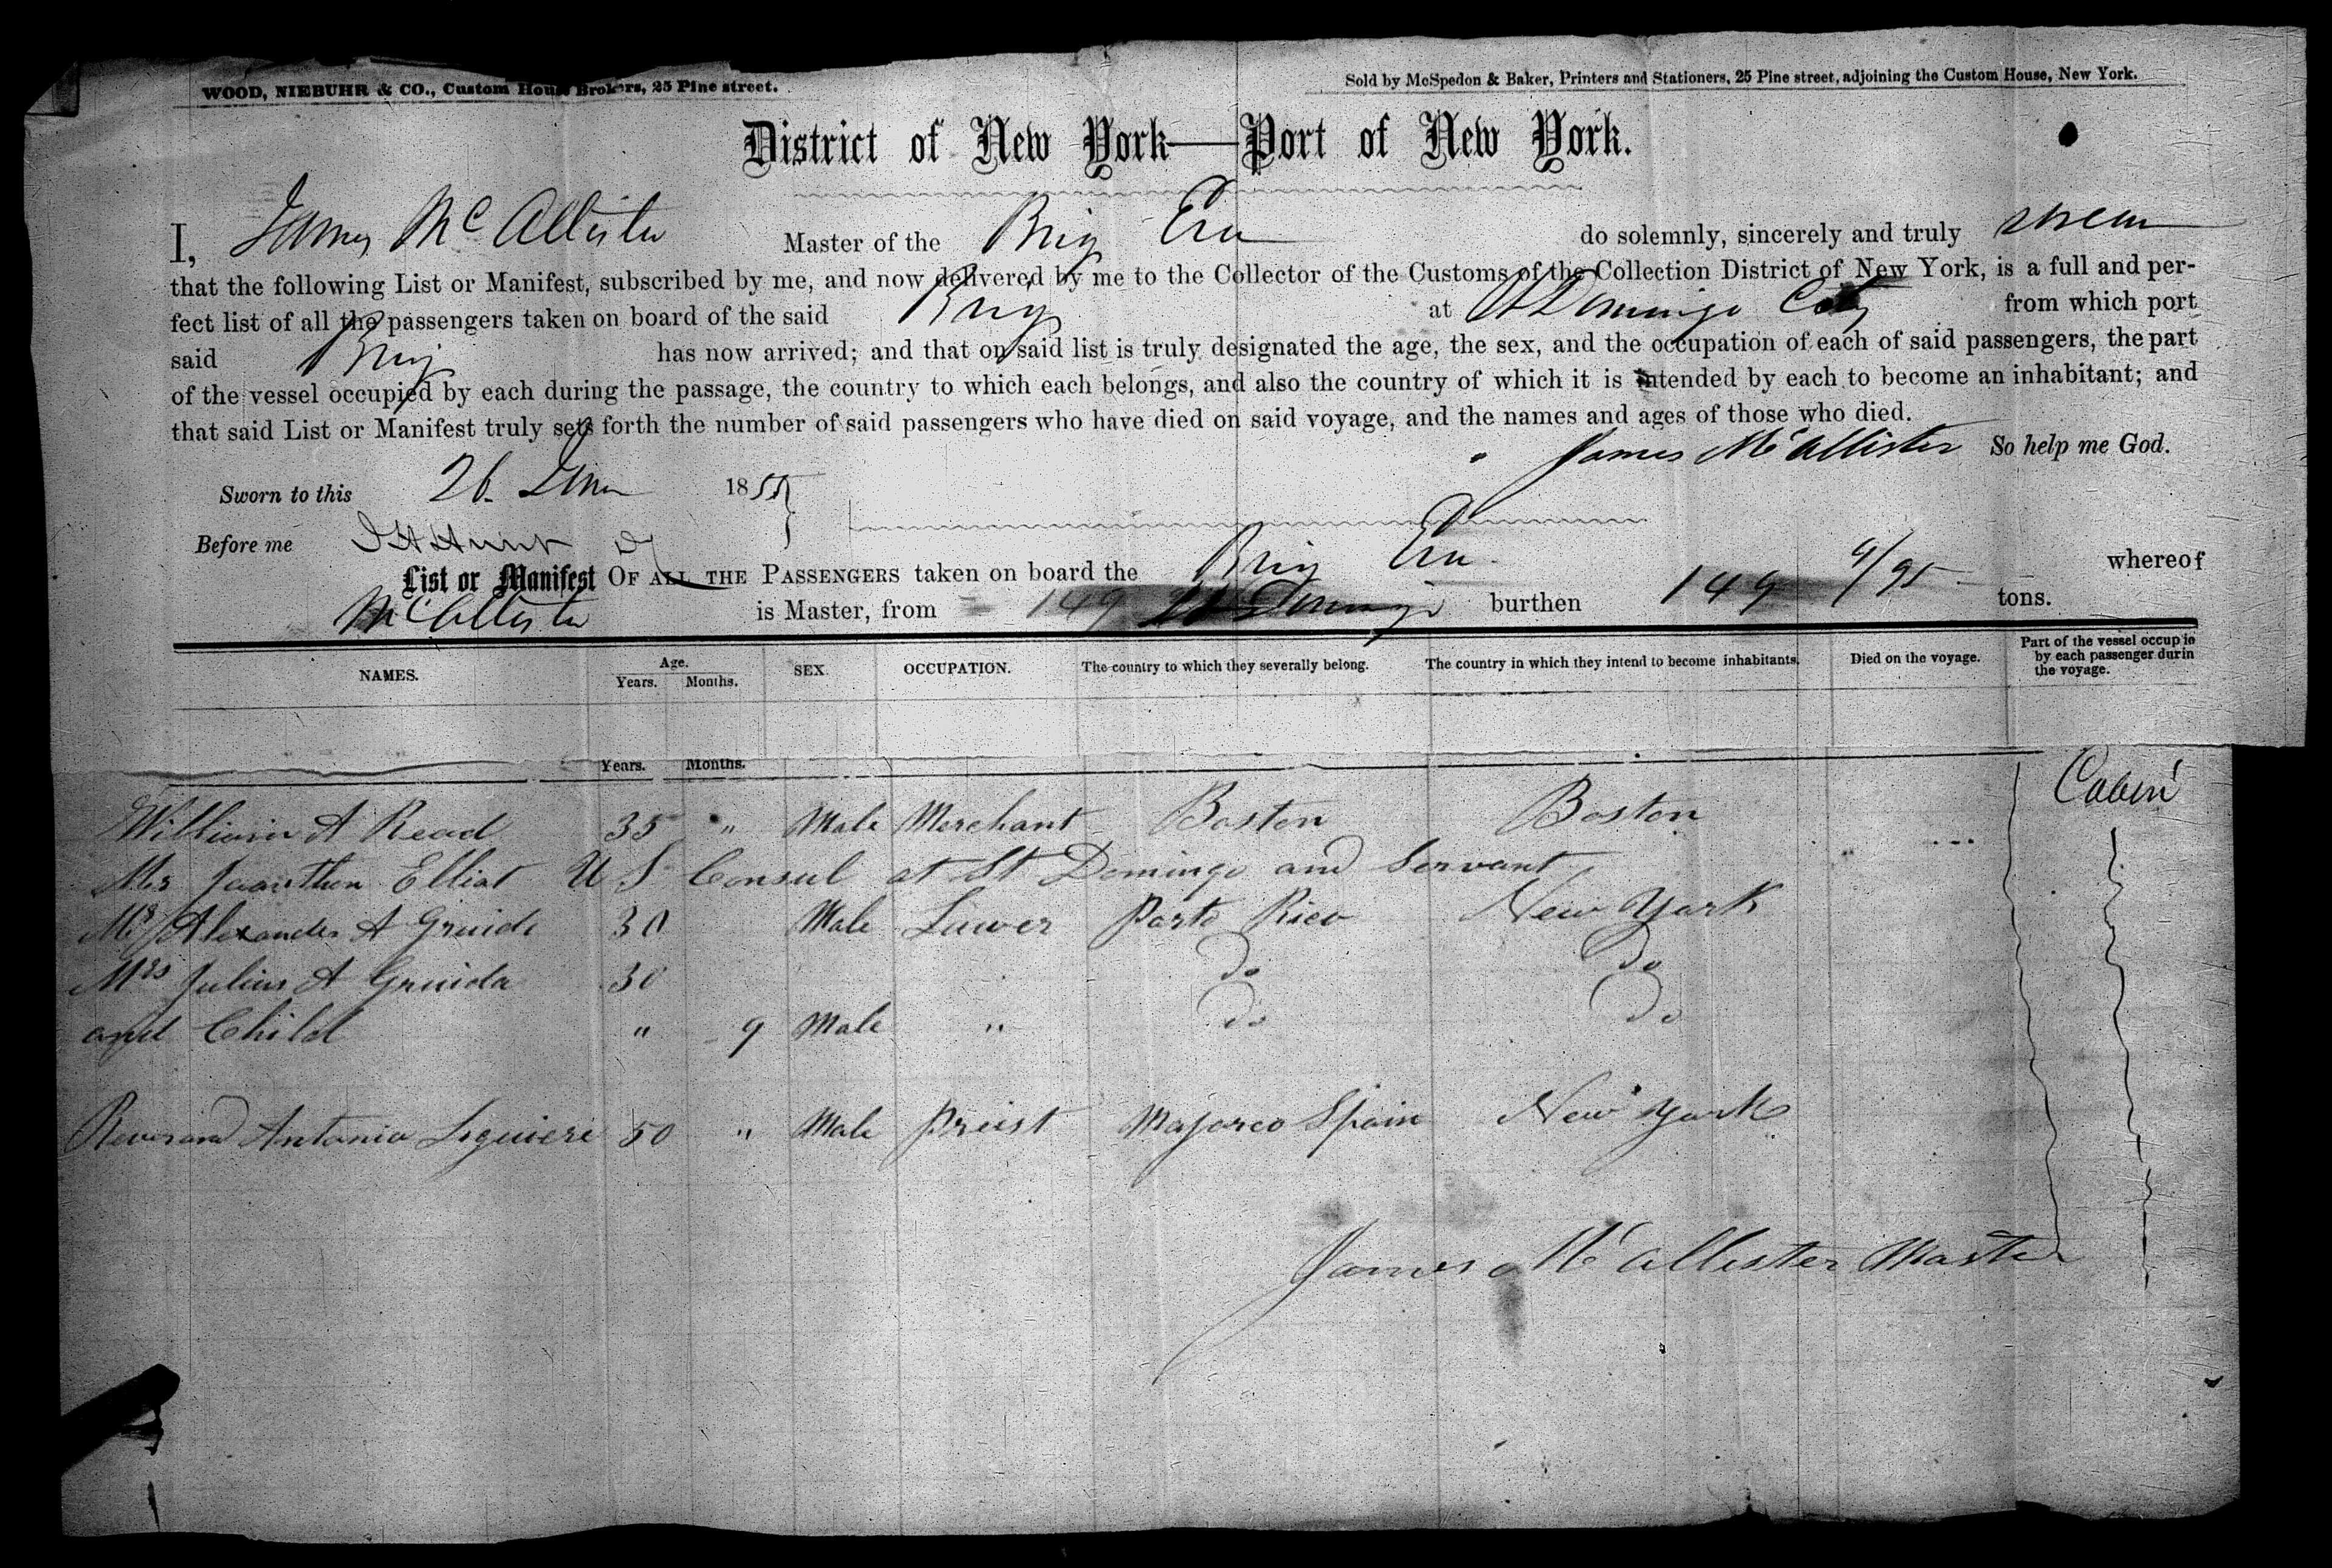 WOOD, NIEBUHR & CO., Custom House Brokers, 25 Pine street.
Sold by McSpedon & Baker, Printers and Stationers, 25 Pine street, adjoining the Custom House, New York.
District of New York—Port of New York.
I, James McAllister Master of the Brig Era do solemnly, sincerely and truly swear
that the following List or Manifest, subscribed by me, and now delivered by me to the Collector of the Customs of the Collection District of New York, is a full and per-
fect list of all the passengers taken on board of the said Brig at St Domingo City from which port
said Brig has now arrived; and that on said list is truly designated the age, the sex, and the occupation of each of said passengers, the part
of the vessel occupied by each during the passage, the country to which each belongs, and also the country of which it is intended by each to become an inhabitant; and
that said List or Manifest truly sets forth the number of said passengers who have died on said voyage, and the names and ages of those who died.
James McAllister So help me God.
Sworn to this 26 June 1855
Before me
List or Manifest OF ALL THE PASSENGERS taken on board the Brig Era whereof
McAllister is Master, from St Domingo burthen 149 4/95 tons.
NAMES. Age. Years. Months. SEX. OCCUPATION. The country to which they severally belong. The country in which they intend to become inhabitants. Died on the voyage. Part of the vessel occup ie by each passenger durin the voyage.
Years. Months.
William A Read 35 " Male Merchant Boston Boston Cabin
Mr Elliot U S Consul at St Domingo and Servant
Mr Alexander A 30 Male Porto Rico New York
Mrs Julius A 30 Do Do
and Child " 9 Male " Do Do
Reverand Antonio 50 " Male Preist Majorco Spain New York
James McAllister Master